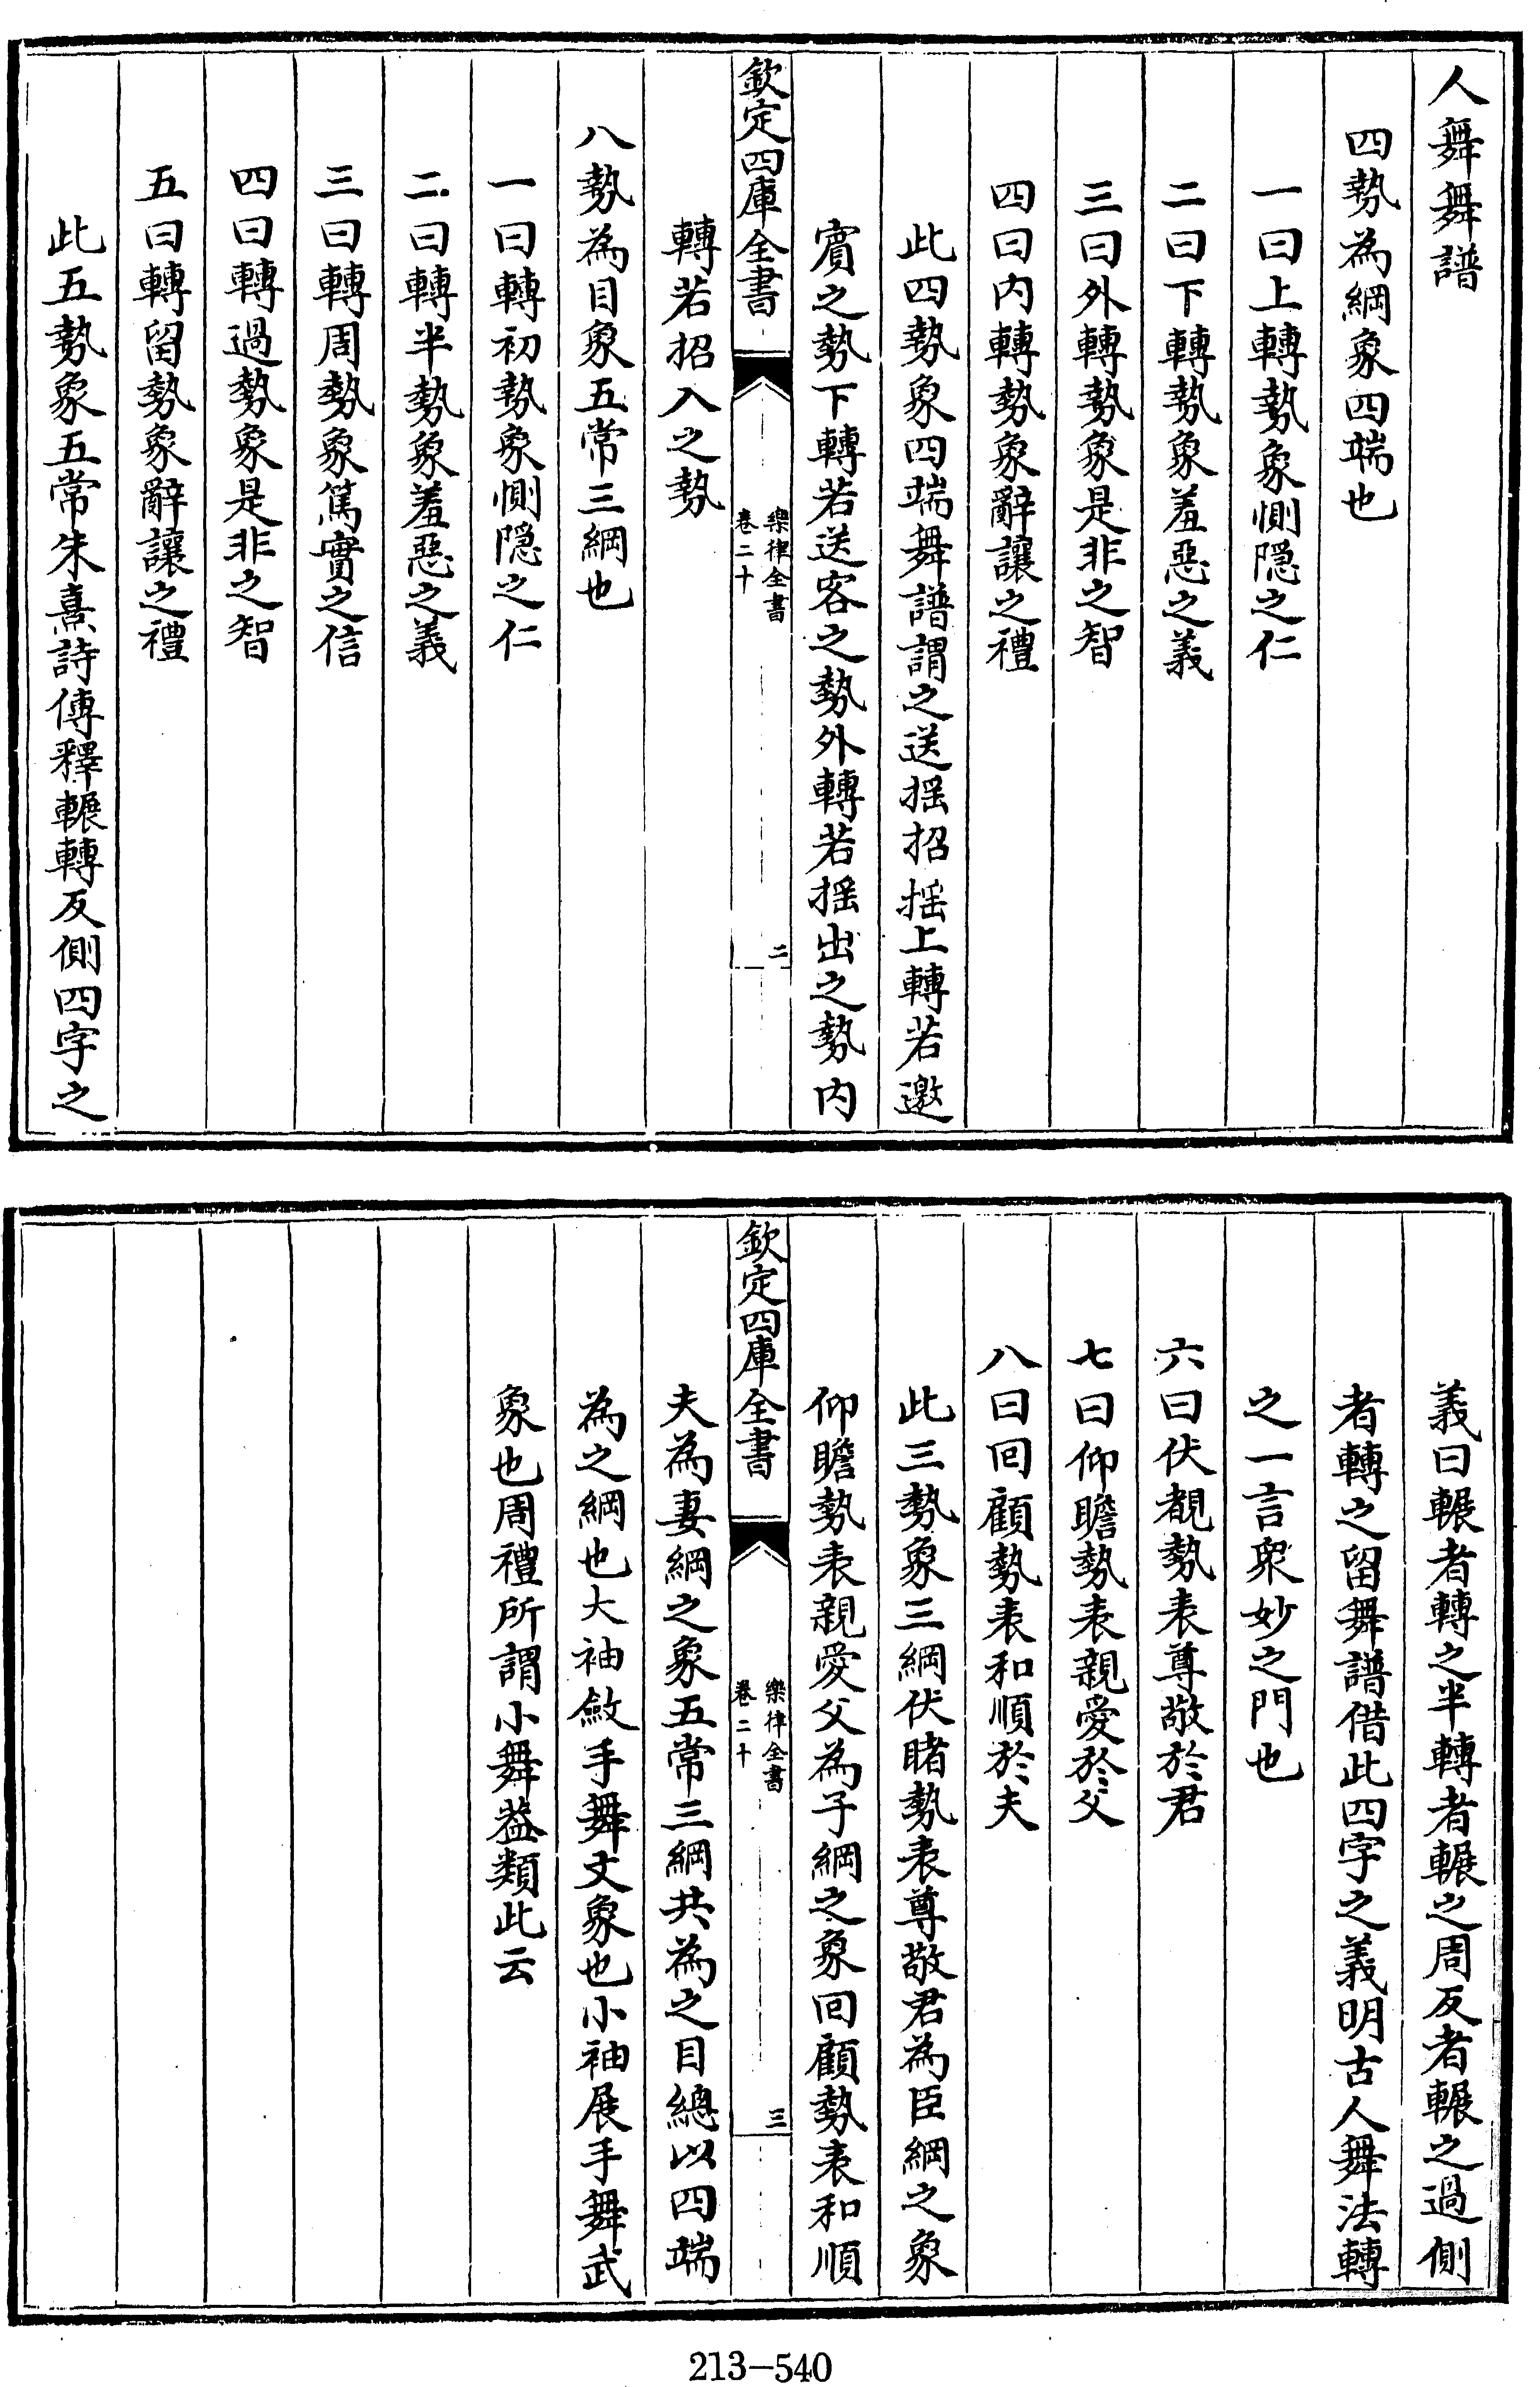 人舞舞譜
四勢為綱象四端也
一曰上轉勢象惻隠之仁
二曰下轉勢象羞惡之義
三曰外轉勢象是非之智
四曰内轉勢象辭讓之禮
此四勢象四端舞譜謂之送揺招揺上轉若邀
賓之勢下轉若送客之勢外轉若揺出之勢内
欽定四庫全書
樂律全書
卷二十
二
轉若招入之勢
八勢為目象五常三綱也
一曰轉初勢象惻隠之仁
二曰轉半勢象羞惡之義
三曰轉周勢象篤實之信
四曰轉過勢象是非之智
五曰轉留勢象辭讓之禮
此五勢象五常朱熹詩傳釋輾轉反側四字之
義曰輾者轉之半轉者輾之周反者輾之過側
者轉之留舞譜借此四字之義明古人舞法轉
之一言衆妙之門也
六曰伏覩勢表尊敬於君
七曰仰瞻勢表親愛於父
八曰回顧勢表和順於夫
此三勢象三綱伏睹勢表尊敬君為臣綱之象
仰瞻勢表親愛父為子綱之象回顧勢表和順
欽定四庫全書
樂律全書
卷二十
三
夫為妻綱之象五常三綱共為之目總以四端
為之綱也大袖斂手舞文象也小袖展手舞武
象也周禮所謂小舞葢類此云
213-540